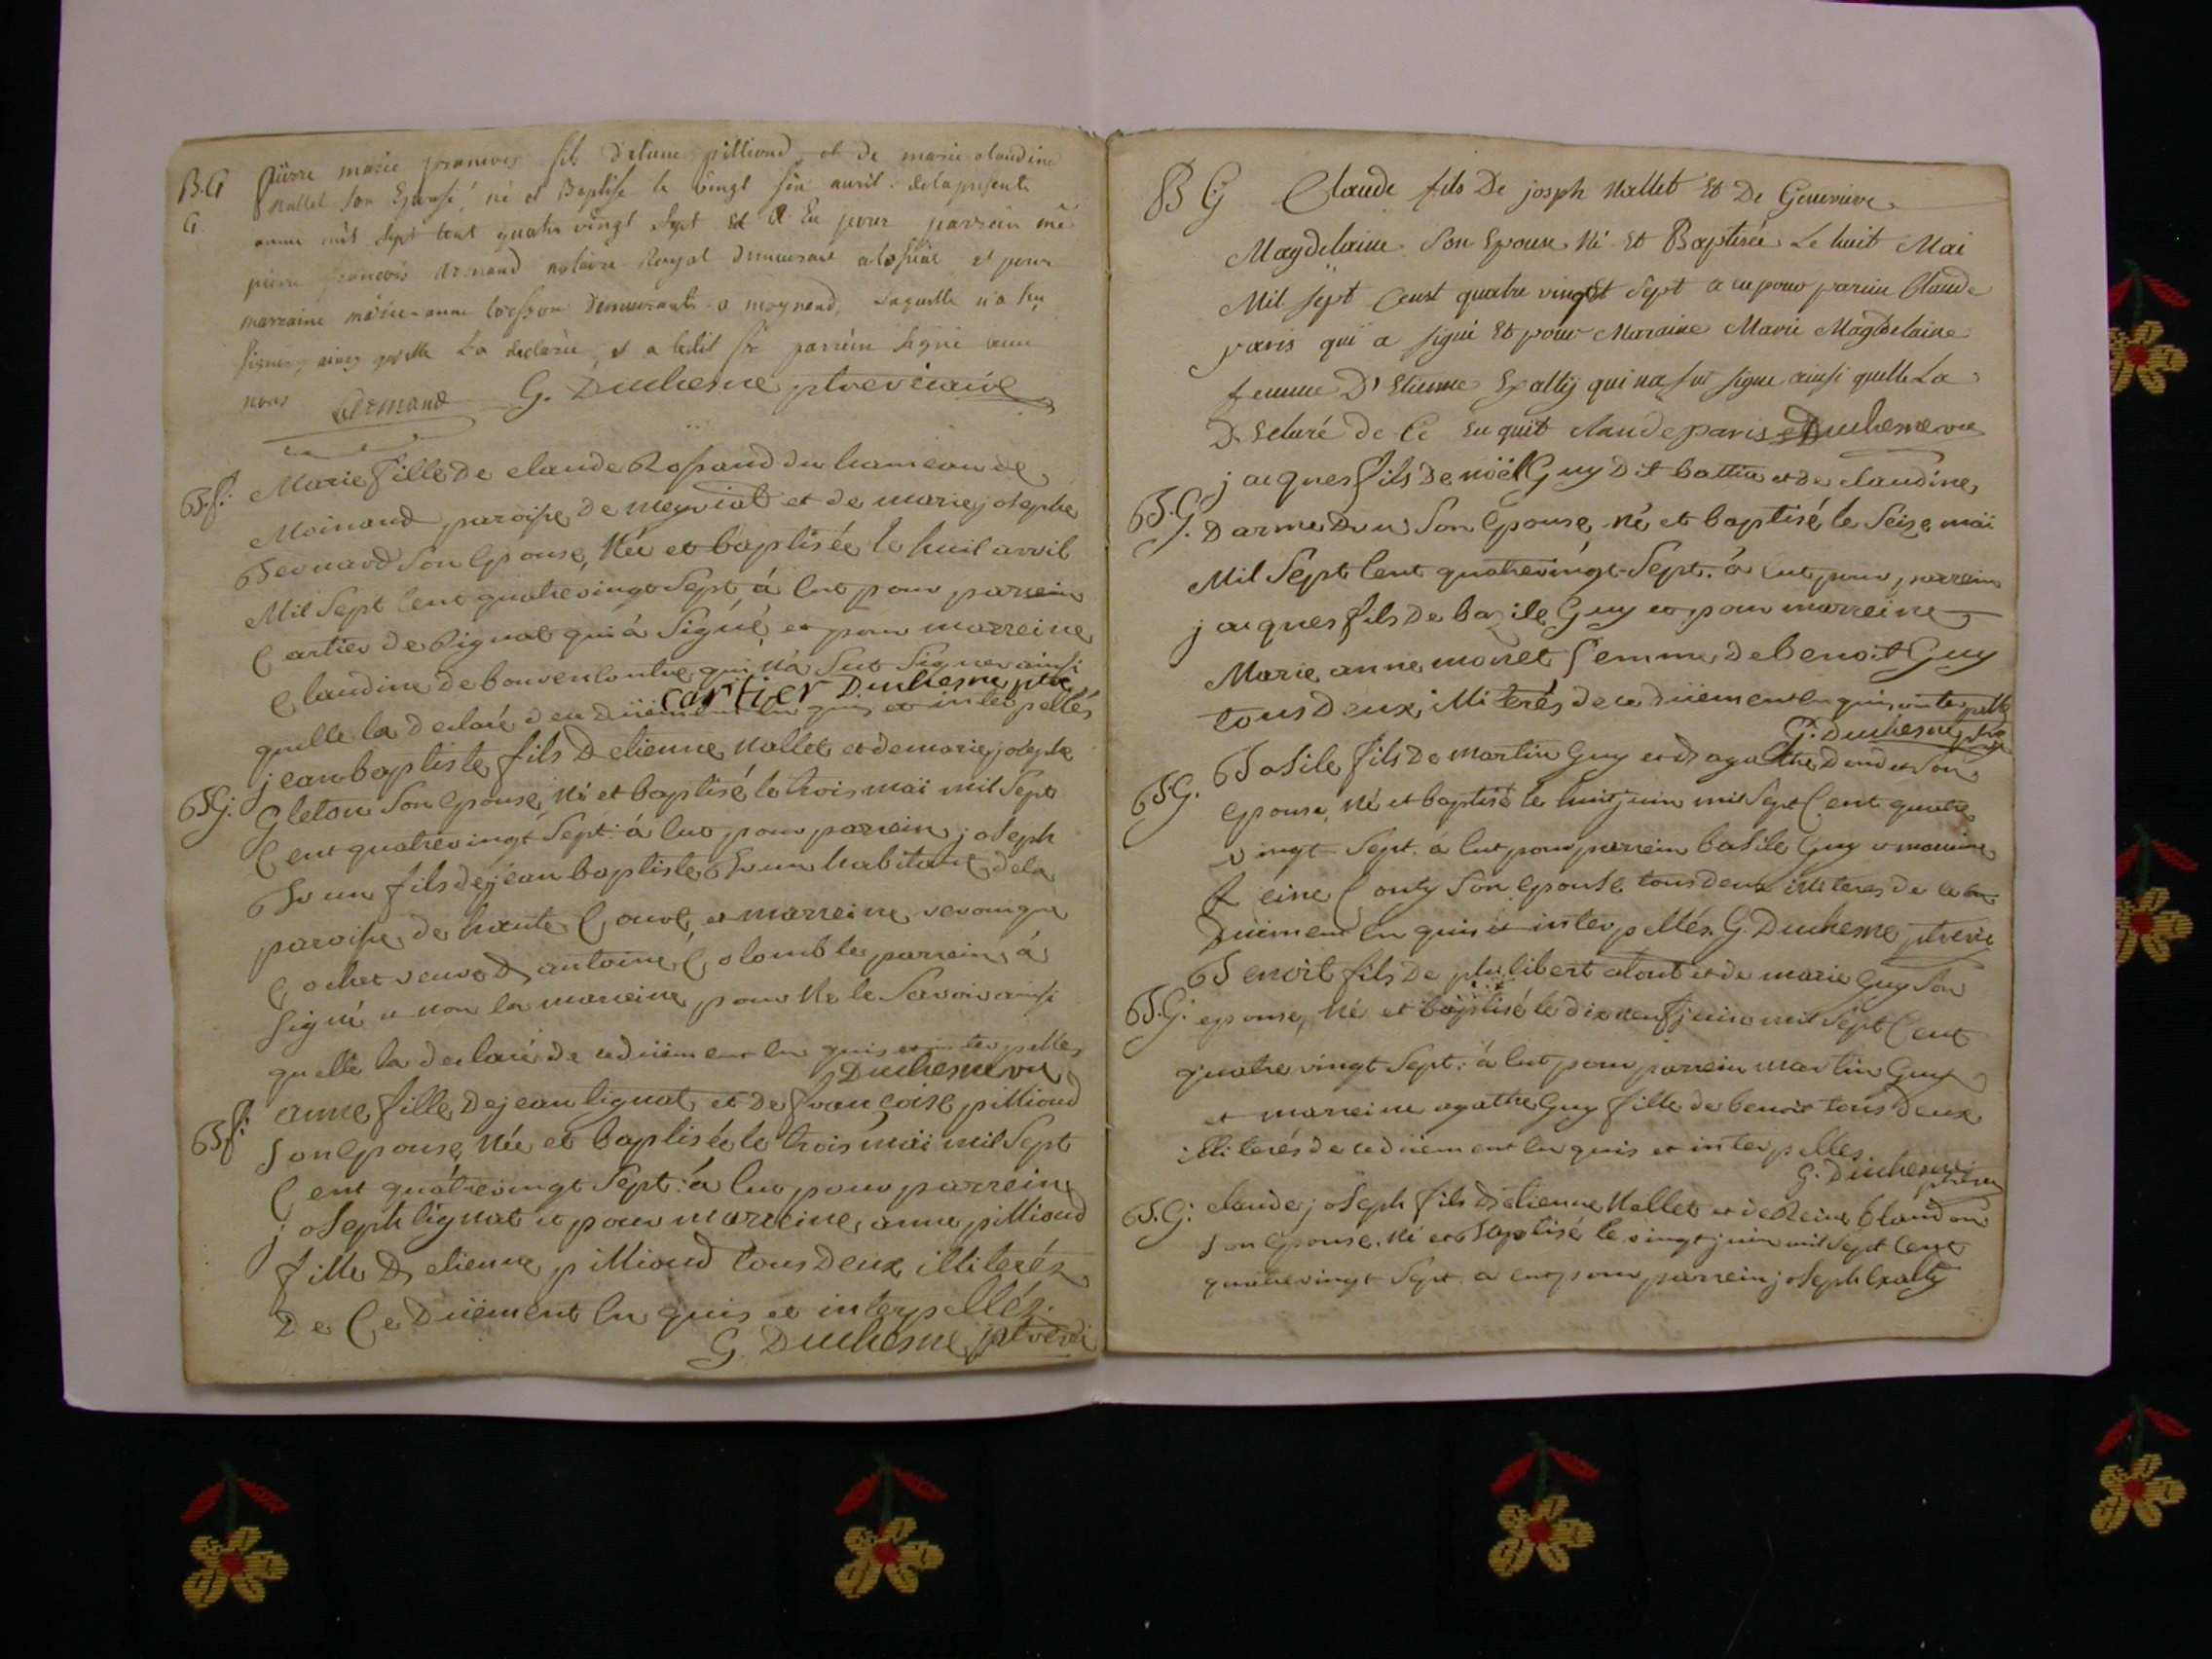 B.G pierre marie francois fils d'etiene pilliond et de marie claudine
G nallet son Epouse, né et Baptise le vingt six avril de la presente
anne mil sept cent quatre vingt sept et a Eu pour parrain me
pierre francois Armand notaire Royal demeurant a et pour
marraine marie anne demeurante a moynand, laquelle n'a su
signer, ainsy qu'elle La declarée, et a ledit sr parrein signé avec
nous Armand G. Duchesne ptre vicaire
B.f: Marie fille de claude Rossand du hameau de
Moinand paroisse de meyriat et de marie josephe
Bernard son Epouse, Née et baptisée le huit avril
Mil Sept Cent quatrevingt Sept, á Eut pour parrein
Cartier de Rignat qui á Signé, et pour marreine
Claudine de bouvencontre qui n'á Sut Signer ainsi
cartier Duchesne ptre
quelle la declaré de ce Düement En quis et interpellés
jean baptiste fils D etienne Nallet et de marie josephe
BG: Gleton Son Epouse, Né et baptisé le trois maï mil Sept
Cent quatrevingt Sept: á Eut pour parrein joseph
Brun fils de jean baptiste Brun habitant de la
paroisse de haute Cour, et marreine
Cochet veuve D antoine Colomb le parrein á
Signé et non la marreine pour Ne le Savoir ainsi
quelle la declaré de ce düement En quis et interpelles
Duchesne vre
B.f: anne fille de jean lignat et de françoise pilliond
Son Epouse, Née et baptisée le trois maï mil Sept
Cent quátrevingt Sept: á Eut pour parrein
joseph lignat et pour marreine anne pilliond
fille D etienne pilliond tous Deux illiterés
De Ce Düement En quis et interpellés.
G. Duchesne ptre vi
B G Claude fils De josph Nallet Et De Genevieve
Magdelaine Son Epouse Né Et Baptisée Le huit Mai
Mil sept Cent quatre vingt Sept a eu pour parein Claude
paris qui a signé Et pour Maraine Marie Magdelaine
femme D'Etienne Exallig qui na sut signe ainsi quelle La
D Eclaré de Ce Enquit claude paris Duchesne vre
jacques fils de noël Guy Dit battin et de claudine
B.G. Darmedru Son Epouse né et baptisé le Seize maï
Mil Sept Cent quatrevingt Sept. á Eut pour parrein
jacques fils de bazile Guy et pour marreine
Marie anne monet femme de benoit Guy
tous Deux illiterés de ce düement En quis interpelle
G. Duchesne ptre
B.G. Basile fils De martin Guy et D agathe Son
Epouse, Né et baptisé le huit juin mil Sept Cent quatre
vingt Sept. á Eut pour parrein basile Guy et marreine
Reine Couty Son Epouse tous deux illiteres de ce
Düement En quis et interpellés. G. Duchesne ptre vie
Benoit fils De philibert alout et de marie Guy Son
B.G: epouse, Né et baptisé le dixneuf juin mil Sept Cent
quatre vingt Sept: á Eut pour parrein martin Guy
et marreine agathe Guy fille de benoit tous deux
illiterés de ce düement En quis et interpelles
G. Duchesne
B.G: claude joseph fils D etienne Nallet et de Reine blandon
Son Epouse. Né et Baptisé le vingt juin mil Sept Cent
quatrevingt Sept. a Eut pour parrein joseph Exallig